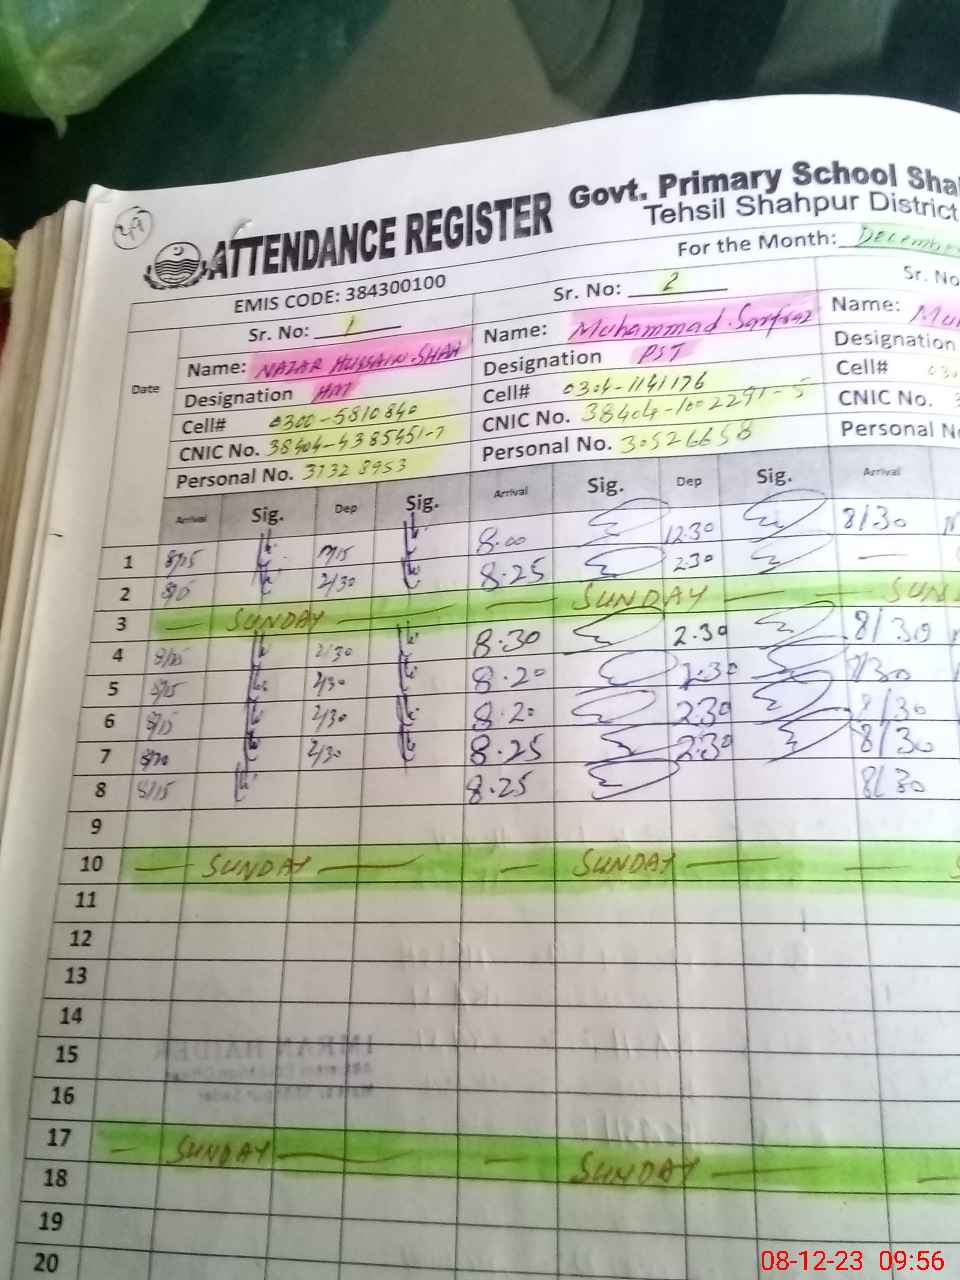 ATTENDANCE REGISTER
Govt. Primary School Sha
Tehsil Shahpur District
For the Month: December
EMIS CODE: 384300100
Date
Sr. No: 1
Name: NAZAR HUSSAIN SHAH
Designation HM
Cell# 0300-5810840
CNIC No. 38404-4385451-7
Personal No. 3132 8953
Sr. No: 2
Name: Muhammad Sarfraz
Designation PST
Cell# 0304-1141176
CNIC No. 38404-1002291-5
Personal No. 30526658
Sr. No
Name: Mu
Designation
Cell# 03
CNIC No. 3
Personal N
Arrival Sig. Dep Sig. Arrival Sig. Dep Sig. Arrival
1 8/15 8.00 12.30 8/30
2 2/30 8.25 2.30 —
3 — SUNDAY — — SUNDAY — — SUN
4 2/30 8.30 2.30 8/30
5 8/15 2/30 8.20 2.30 8/30
6 8/15 2/30 8.20 2.30 8/30
7 8/20 2/30 8.25 2.30 8/30
8 8/15 8.25 8/30
9
10 — SUNDAY — — SUNDAY — — S
11
12
13
14
15
16
17 — SUNDAY — — SUNDAY — —
18
19
20
08-12-23 09:56